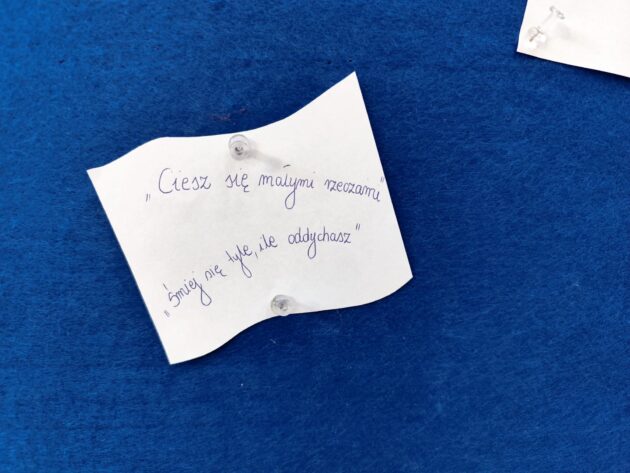 „Ciesz się małymi rzeczami"
„śmiej się tyle, ile oddychasz"